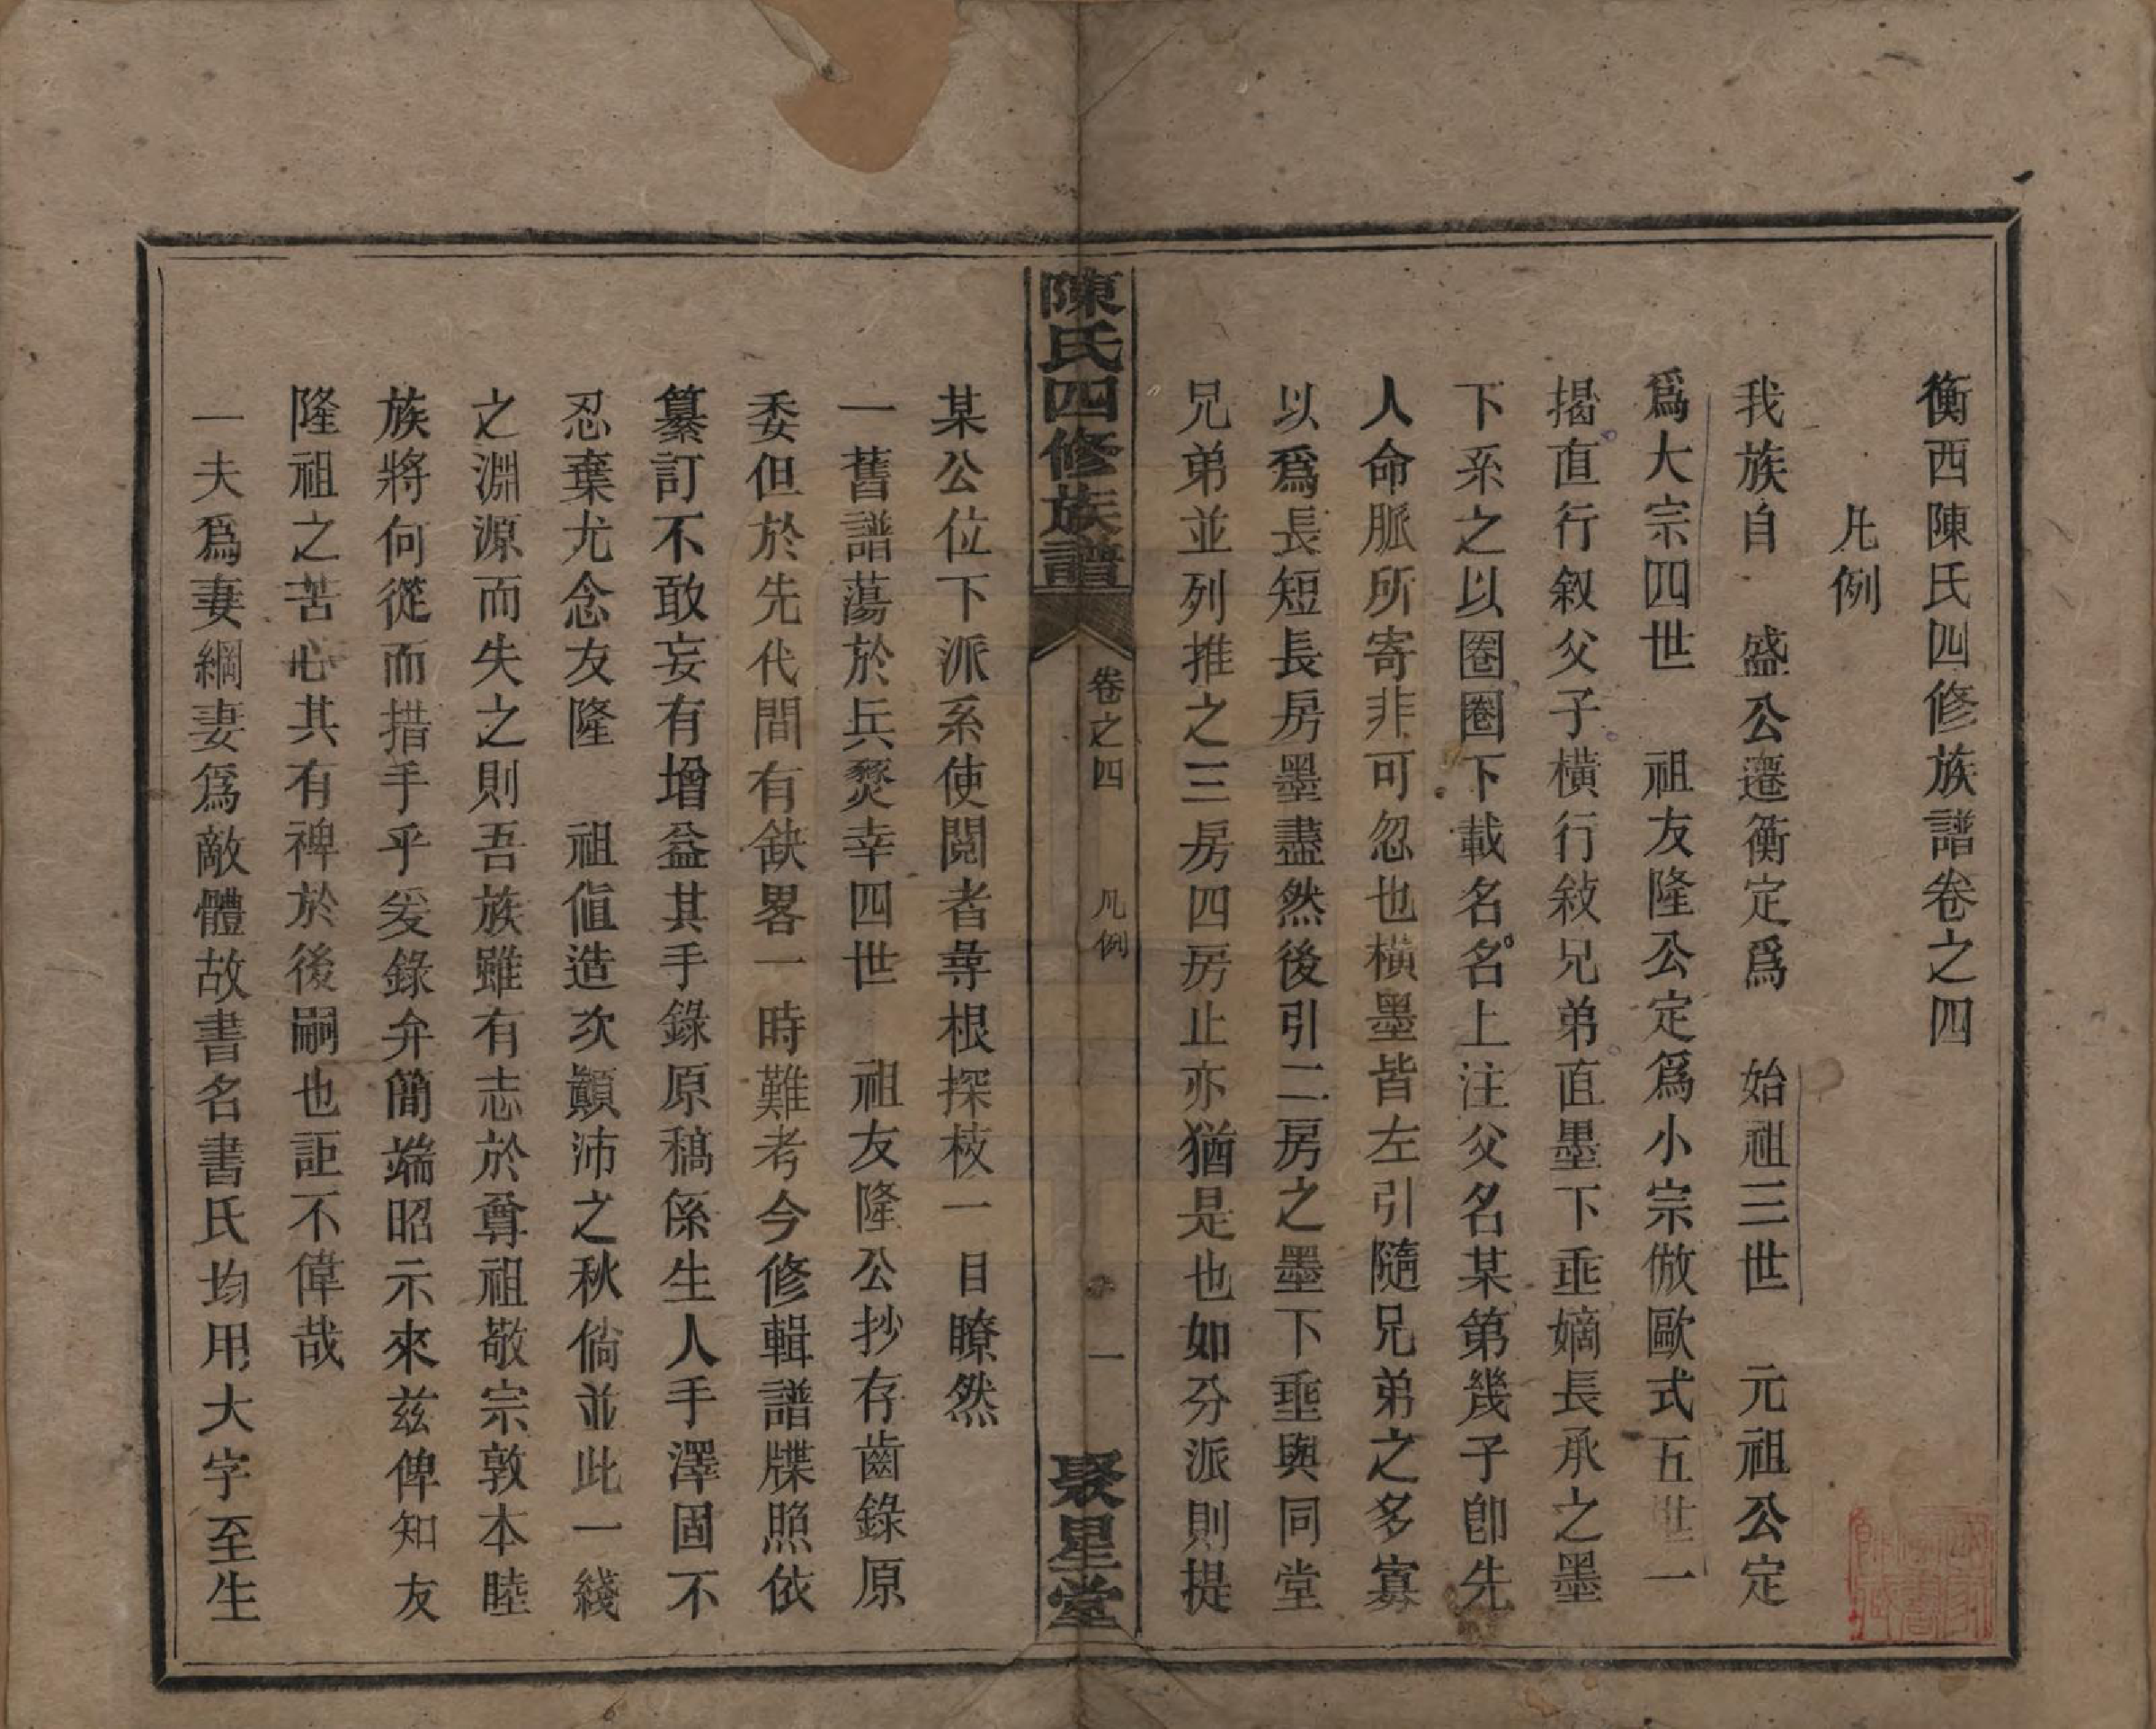 衡西陳氏四修族譜卷之四
凡例
我族自　盛公遷衡定爲　始祖三世　元祖公定
爲大宗四世　祖友隆公定爲小宗倣歐式五世一
揭直行叙父子橫行敍兄弟直墨下垂嫡長承之墨
下系之以圈圈下載名名上注父名某第幾子卽先
人命脈所寄非可忽也橫墨皆左引隨兄弟之多寡
以爲長短長房墨盡然後引二房之墨下垂與同堂
兄弟並列推之三房四房止亦猶是也如分派則提
陳氏四修族譜
卷之四
凡例
一
聚星堂
某公位下派系使閱者尋根探枝一目瞭然
一舊譜蕩於兵燹幸四世　祖友隆公抄存齒錄原
委但於先代間有缺畧一時難考今修輯譜牒照依
纂訂不敢妄有增益其手錄原稿係生人手澤固不
忍棄尤念友隆　祖值造次顚沛之秋倘並此一綫
之淵源而失之則吾族雖有志於尊祖敬宗敦本睦
族將何從而措手乎爰錄弁簡端昭示來茲俾知友
隆祖之苦心其有裨於後嗣也詎不偉哉
一夫爲妻綱妻爲敵體故書名書氏均用大字至生